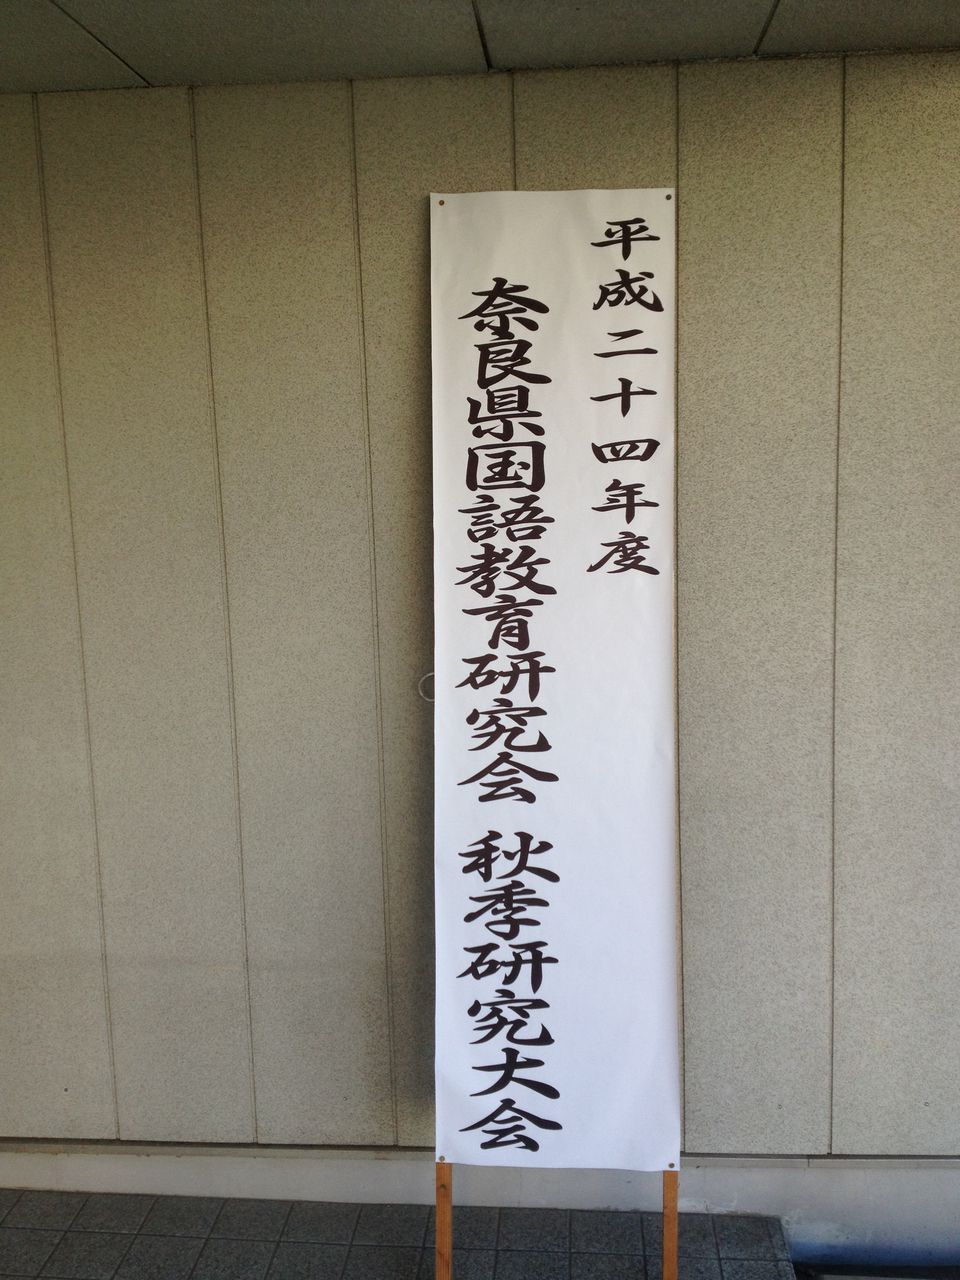 平成二十四年度
奈良県国語教育研究会 秋季研究大会